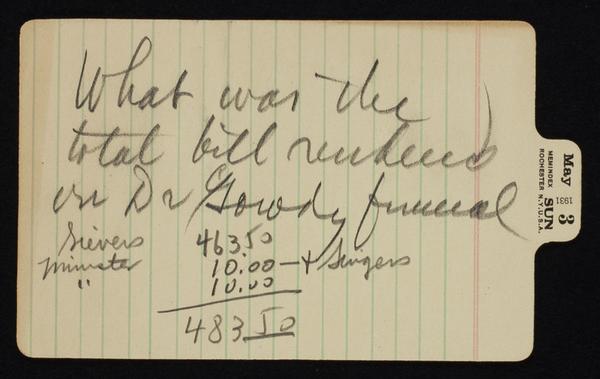 What was the
total bill rendered
on Dr Gowdy funeral
Sievers 463.50
Minister 10.00 - + Singers
" 10.00
483 50
May
1931 3
SUN
MEMINDEX
ROCHESTER N.Y. U.S.A.